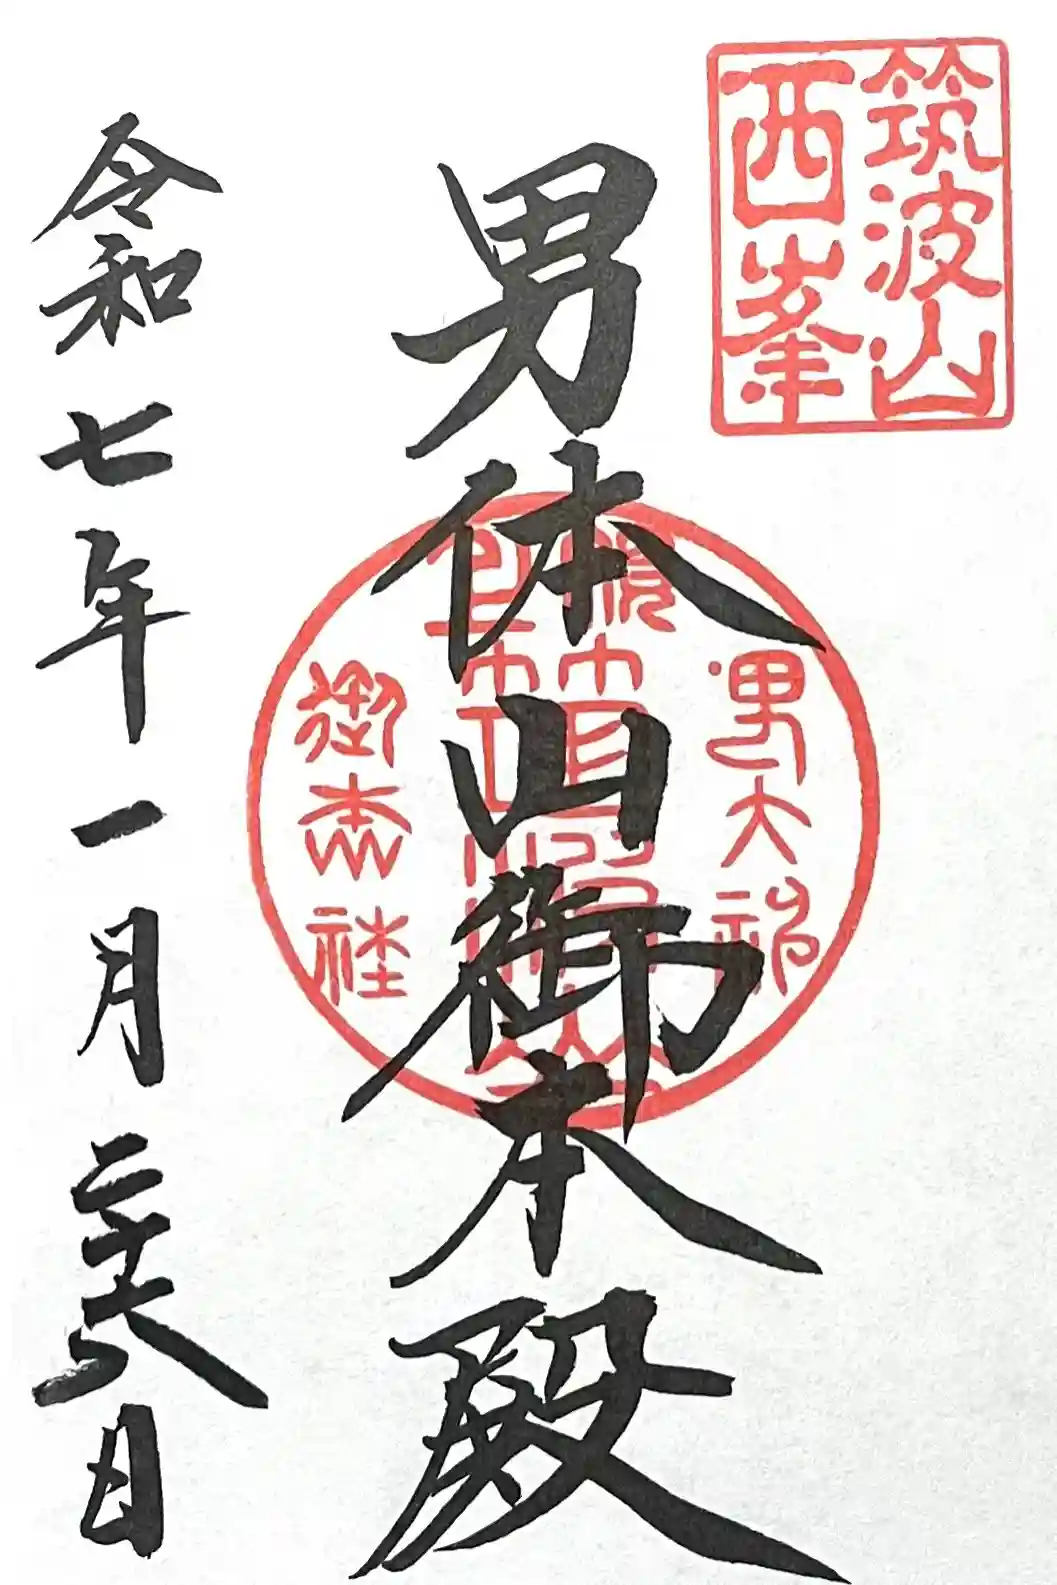 筑波山
西峯
男体山御本殿
男大神
令和七年一月二十六日